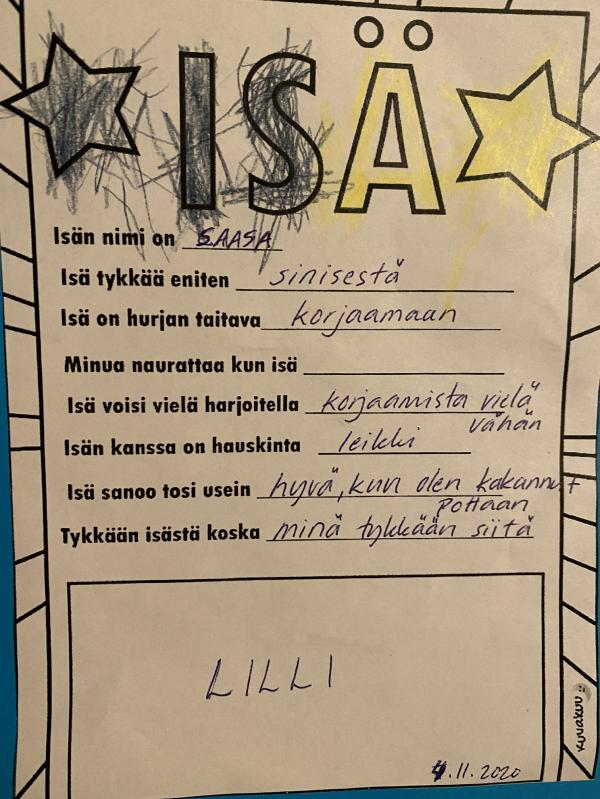 ISÄ
Isän nimi on SAASA
Isä tykkää eniten sinisestä
Isä on hurjan taitava korjaamaan
Minua naurattaa kun isä
Isä voisi vielä harjoitella korjaamista vielä
vähän
Isän kanssa on hauskinta leikki
Isä sanoo tosi usein hyvä, kun olen kakannut
pottaan
Tykkään isästä koska minä tykkään siitä
LILLI
4.11.2020
kuvakuu